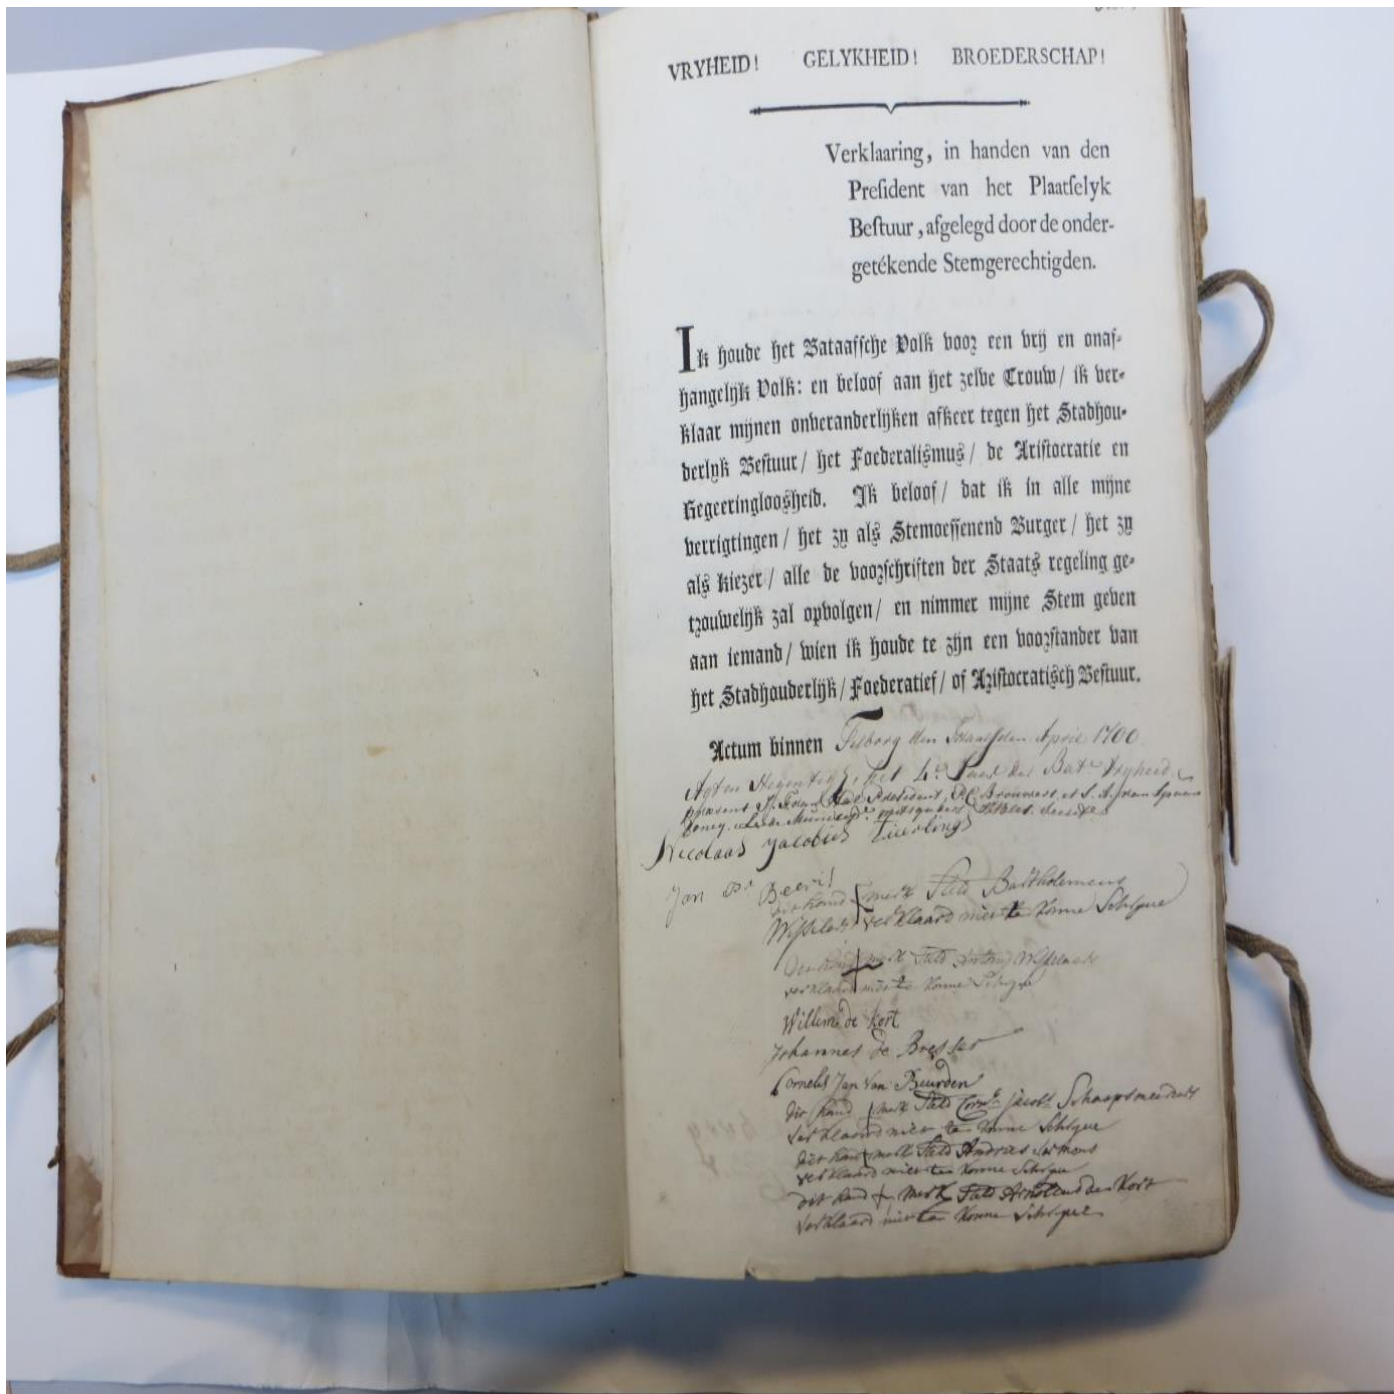 VRYHEID! GELYKHEID! BROEDERSCHAP!
Verklaaring, in handen van den
Preſident van het Plaatſelyk
Beſtuur, afgelegd door de onder-
getékende Stemgerechtigden.
Ik houde het Bataafſche Volk voor een vrij en onaf-
hangelijk Volk: en beloof aan het zelve Trouw/ ik ver-
klaar mijnen onveranderlijken afkeer tegen het Stadhou-
derlyk Beſtuur/ het Foederalismus/ de Ariſtocratie en
Regeeringloosheid. Ik beloof/ dat ik in alle mijne
verrigtingen/ het zy als Stemoeffenend Burger/ het zy
als kiezer/ alle de voorſchriften der Staats regeling ge-
trouwelijk zal opvolgen/ en nimmer mijne Stem geven
aan iemand/ wien ik houde te zijn een voorſtander van
het Stadhouderlijk/ Foederatief/ of Ariſtocratiſch Beſtuur.
Actum binnen Tilborg den April 1700
het 4e Jaar der Bat. Vryheid
President, P. C. Brouwers et
Nicolaas Jacobus
Jan Beeris
merk Bartholomeus
verklaard niet te konne Schryve
merk
verklaard niet te konne Schryve
Willem de Kort
Johannes de Bresser
Cornelis Jan van Beurden
dit hand merk Corn.
verklaard niet te konne Schryve
dit hand merk Andries
verklaard niet te konne Schryve
dit hand + merk Arnoldus de Kort
verklaard niet te konne Schryve